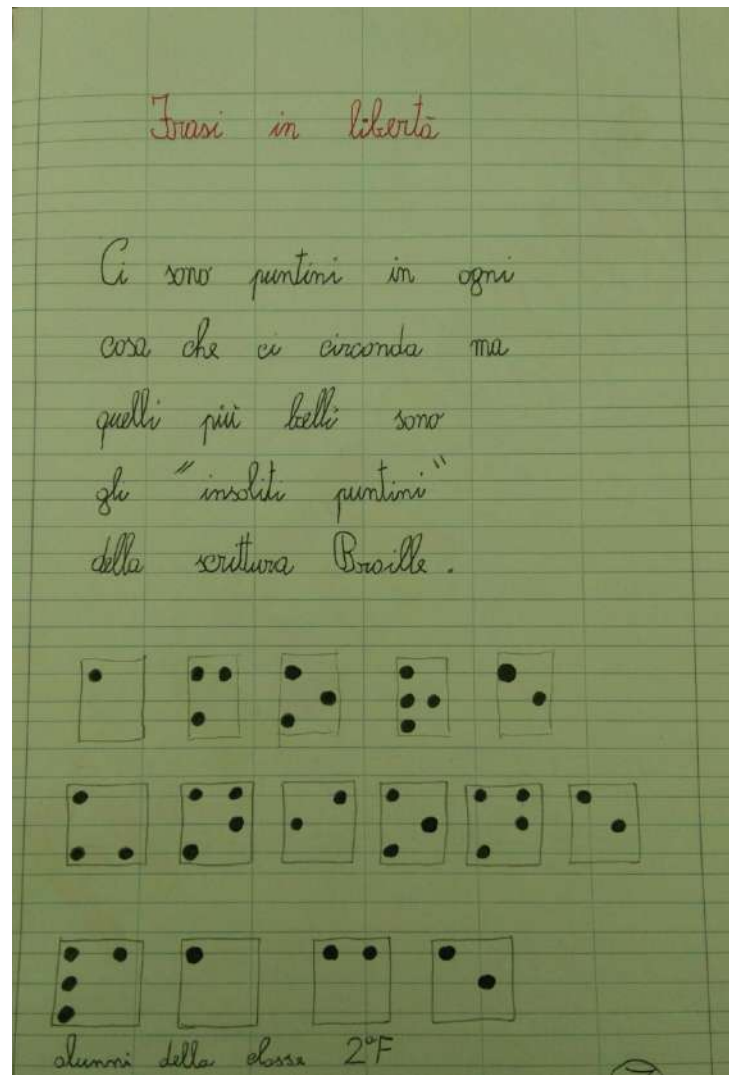 Frasi in libertà
Ci sono puntini in ogni
cosa che ci circonda ma
quelli più belli sono
gli "insoliti puntini"
della scrittura Braille.
⠁⠍⠕⠗⠑
⠥⠝⠊⠕⠝⠑
⠏⠁⠉⠑
alunni della classe 2°F